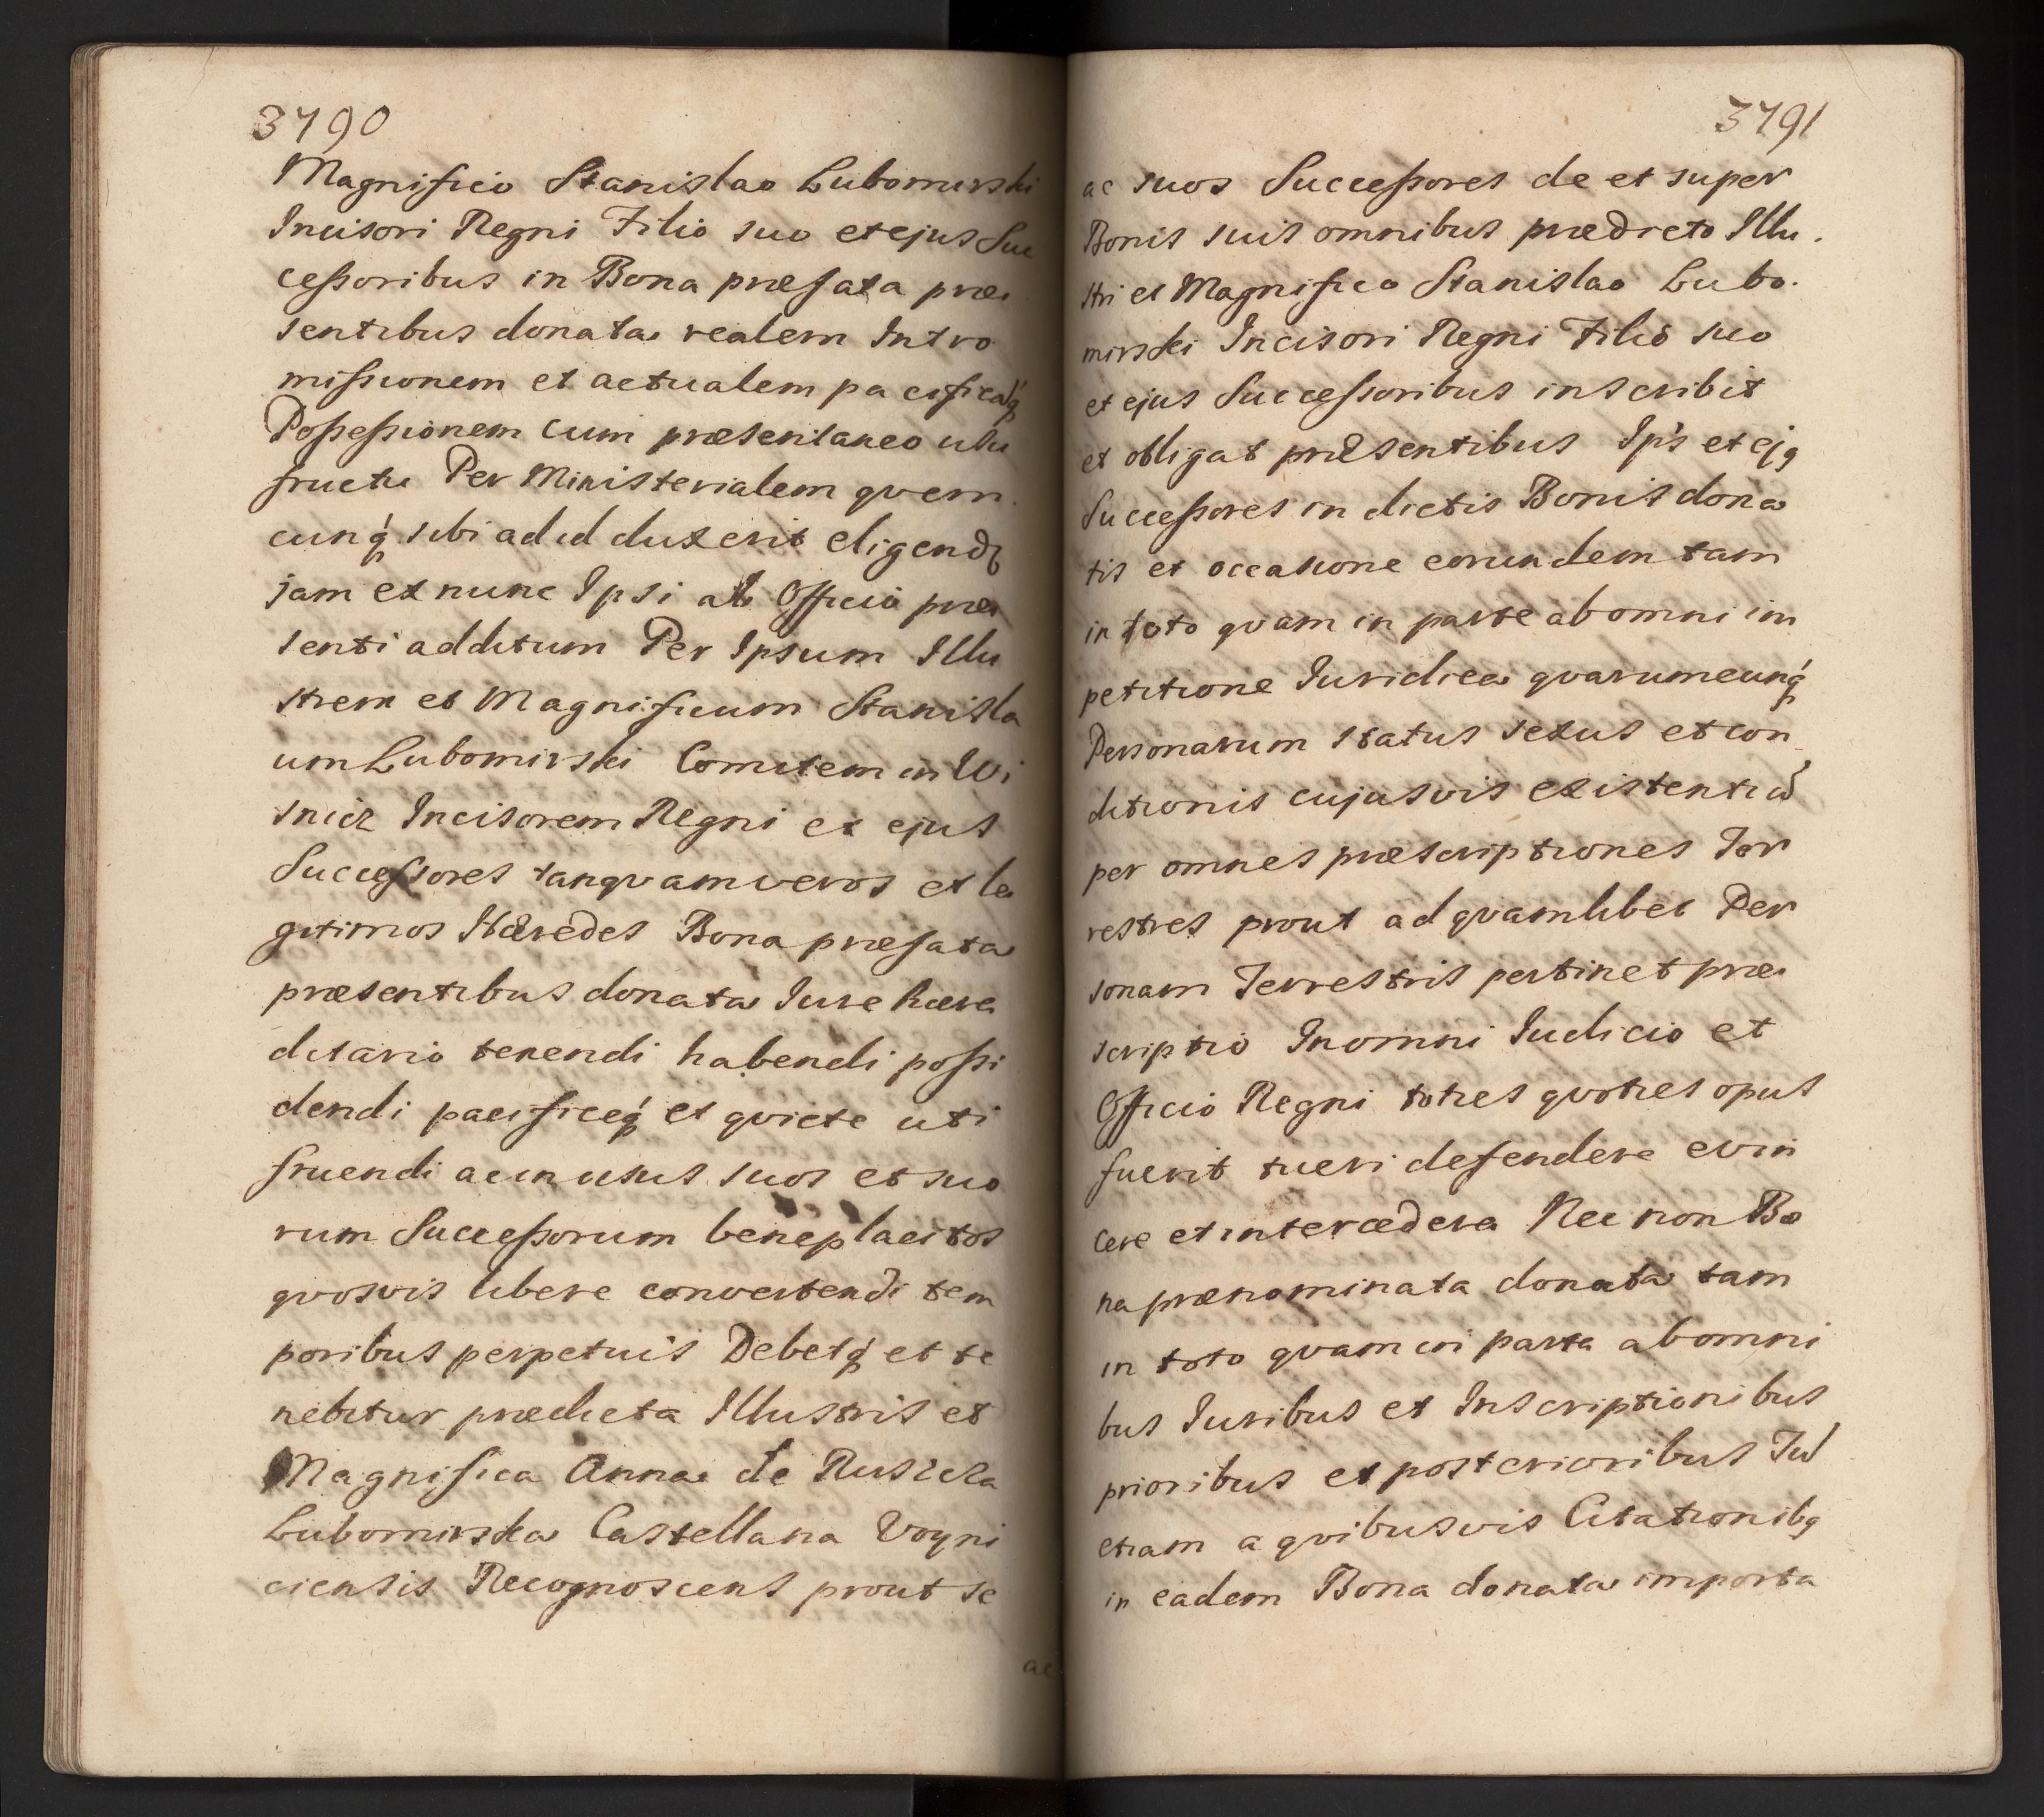 3790
Magnifico Stanislao Lubomirski
Incisori Regni Filio suo et ejus Suc
ceßoribus in Bona præfata præ
sentibus donata realem Intro
mißionem et actualem pacificaq́
Poßeßionem cum præsentaneo usu
fructu Per Ministerialem qvem
cunq́ sibi ad id duxerit eligendꝫ
jam ex nunc Ipsi ab Officio præ
senti additum Per Ipsum Illu
strem et Magnificum Stanisla
um Lubomirski Comitem in Wi
snicz Incisorem Regni et ejus
Succeßores tanqvam veros et le
gitimos Hæredes Bona præfata
præsentibus donata Jure hære
ditario tenendi habendi poßi
dendi pacificeq́ et qviete uti
fruendi ac in usus suos et suo
rum Succeßorum beneplacitos
qvosvis libere convertendi tem
poribus perpetuis Debetq́ et te
nebitur prædicta Illustris et
Magnifica Anna de Rusicza
Lubomirska Castellana Voyni
ciensis Recognoscens prout se
ac
3791
ac suos Succeßores de et super
Bonis suis omnibus prædicto Illu.
stri et Magnifico Stanislao Lubo.
mirski Incisori Regni Filio suo
et ejus Succeßoribus inscribit
et obligat præsentibus Ips et ejꝯ
Succeßores in dictis Bonis dona
tis et occasione eorundem tam
in toto qvam in parte ab omni im
petitione Juridica qvarumcunq́
Personarum status sexus et con
ditionis cujusvis existentiū
per omnes præscriptiones Ter
restres prout ad qvamlibet Per
sonam Terrestris pertinet præ
scriptio In omni Judicio et
Officio Regni toties qvoties opus
fuerit tueri defendere evin
cere et intercedere Nec non Bo
na prænominata donata tam
in toto qvam in parte ab omni
bus Juribus et Inscriptionibus
prioribus et posterioribus Tū
etiam a qvibusvis Citationibꝯ
in eadem Bona donata importa